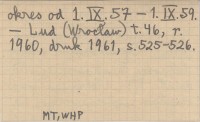 okres od 1.IX.57 – 1.IX.59.
– Lud (Wrocław) t. 46, r.
1960, druk 1961, s. 525-526.
MT, WHP